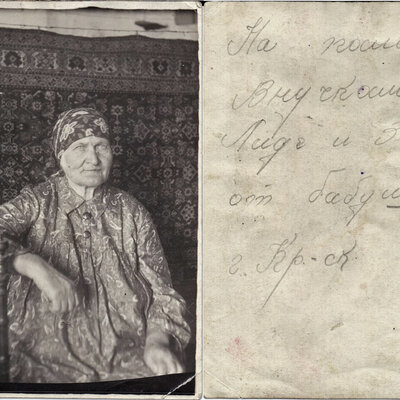 На
Внучкам
Лиде и
от бабуш
г. Кр-ск